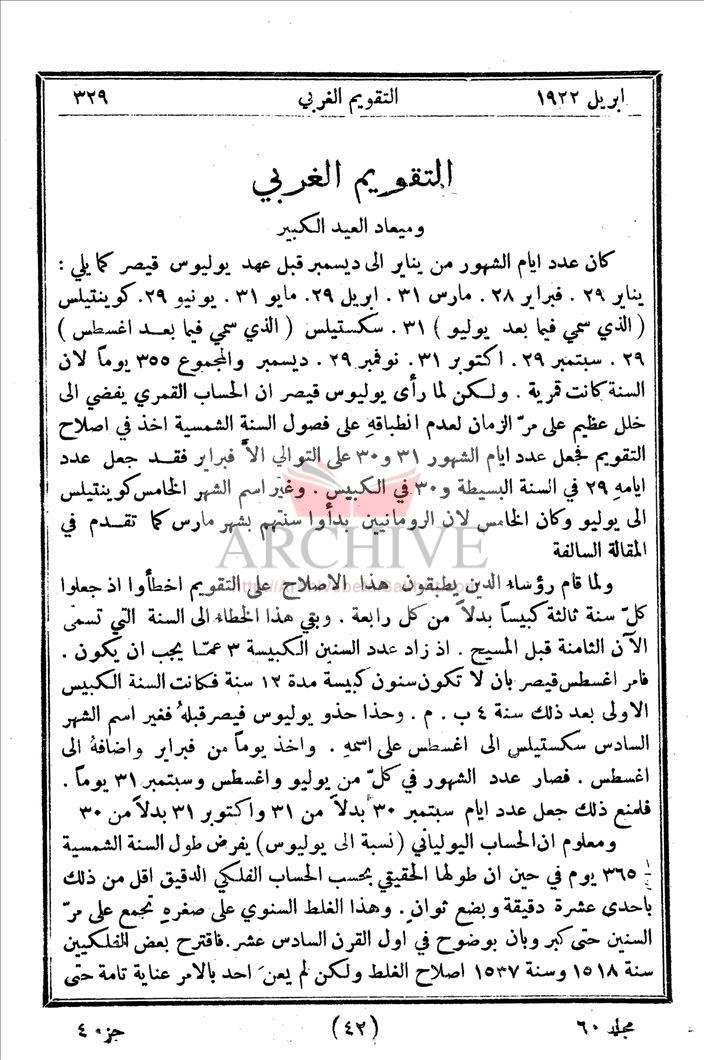 ابريل ١٩٢٢ التقويم الغربي ٣٢٩
التقويم الغربي
وميعاد العيد الكبير
كان عدد ايام الشهور من يناير الى ديسمبر قبل عهد يوليوس قيصر كما يلي :
يناير ٢٩ . فبراير ٢٨ . مارس ٣١ . ابريل ٢٩. مايو ٣١ . يونيو ٢٩. كوينتيلس
( الذي سمي فيما بعد يوليو ) ٣١ . سكستيلس ( الذي سمي فيما بعد اغسطس )
٢٩ . سبتمبر ٢٩ . اكتوبر ٣١ . نوفمبر ٢٩ . ديسمبر والمجموع ٣٥٥ يوماً لان
السنة كانت قمرية . ولكن لما رأى يوليوس قيصر ان الحساب القمري يفضي الى
خلل عظيم على مرّ الزمان لعدم انطباقهِ على فصول السنة الشمسية اخذ في اصلاح
التقويم فجعل عدد ايام الشهور ٣١ و٣٠ على التوالي الاَّ فبراير فقد جعل عدد
ايامهِ ٢٩ في السنة البسيطة و٣٠ في الكبيس . وغير اسم الشهر الخامس كوينتيلس
الى يوليو وكان الخامس لان الرومانيين بدأوا سنتهم بشهر مارس كما تقدم في
المقالة السالفة
ARCHIVE
ولما قام رؤساء الدين يطبقون هذا الاصلاح على التقويم اخطأوا اذ جعلوا
كلّ سنة ثالثة كبيساً بدلاً من كل رابعة . وبقي هذا الخطاء الى السنة التي تسمى
الآن الثامنة قبل المسيح . اذ زاد عدد السنين الكبيسة ٣ عمّا يجب ان يكون .
فامر اغسطس قيصر بان لا تكون سنون كبيسة مدة ١٢ سنة فكانت السنة الكبيس
الاولى بعد ذلك سنة ٤ ب . م . وحذا حذو يوليوس قيصر قبلهُ فغير اسم الشهر
السادس سكستيلس الى اغسطس على اسمهِ . واخذ يوماً من فبراير واضافهُ الى
اغسطس . فصار عدد الشهور في كلّ من يوليو واغسطس وسبتمبر ٣١ يوماً .
فلمنع ذلك جعل عدد ايام سبتمبر ٣٠ بدلاً من ٣١ واكتوبر ٣١ بدلاً من ٣٠
ومعلوم ان الحساب اليولياني (نسبة الى يوليوس) يفرض طول السنة الشمسية
٣٦٥ ١/٤ يوم في حين ان طولها الحقيقي بحسب الحساب الفلكي الدقيق اقل من ذلك
باحدى عشرة دقيقة وبضع ثوانٍ . وهذا الغلط السنوي على صغرهِ تجمع على مرّ
السنين حتى كبر وبان بوضوح في اول القرن السادس عشر . فاقترح بعض الفلكيين
سنة ١٥١٨ وسنة ١٥٣٧ اصلاح الغلط ولكن لم يعنَ احد بالامر عناية تامة حتى
مجلد ٦٠ (٤٢) جزء ٤